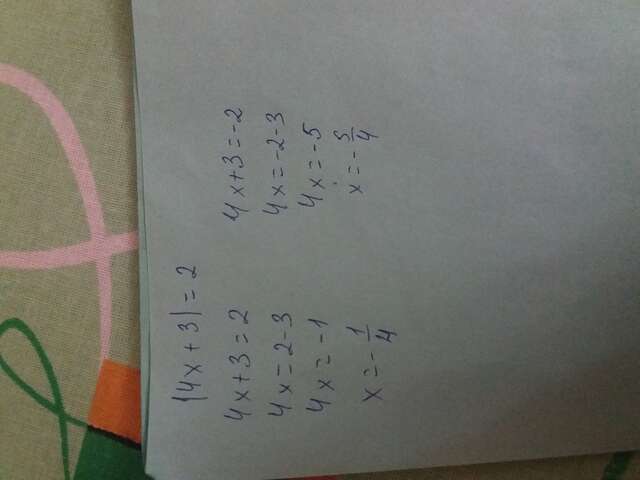 |4x + 3| = 2
4x + 3 = 2
4x = 2 - 3
4x = -1
x = - 1/4
4x + 3 = -2
4x = -2 - 3
4x = -5
x = - 5/4